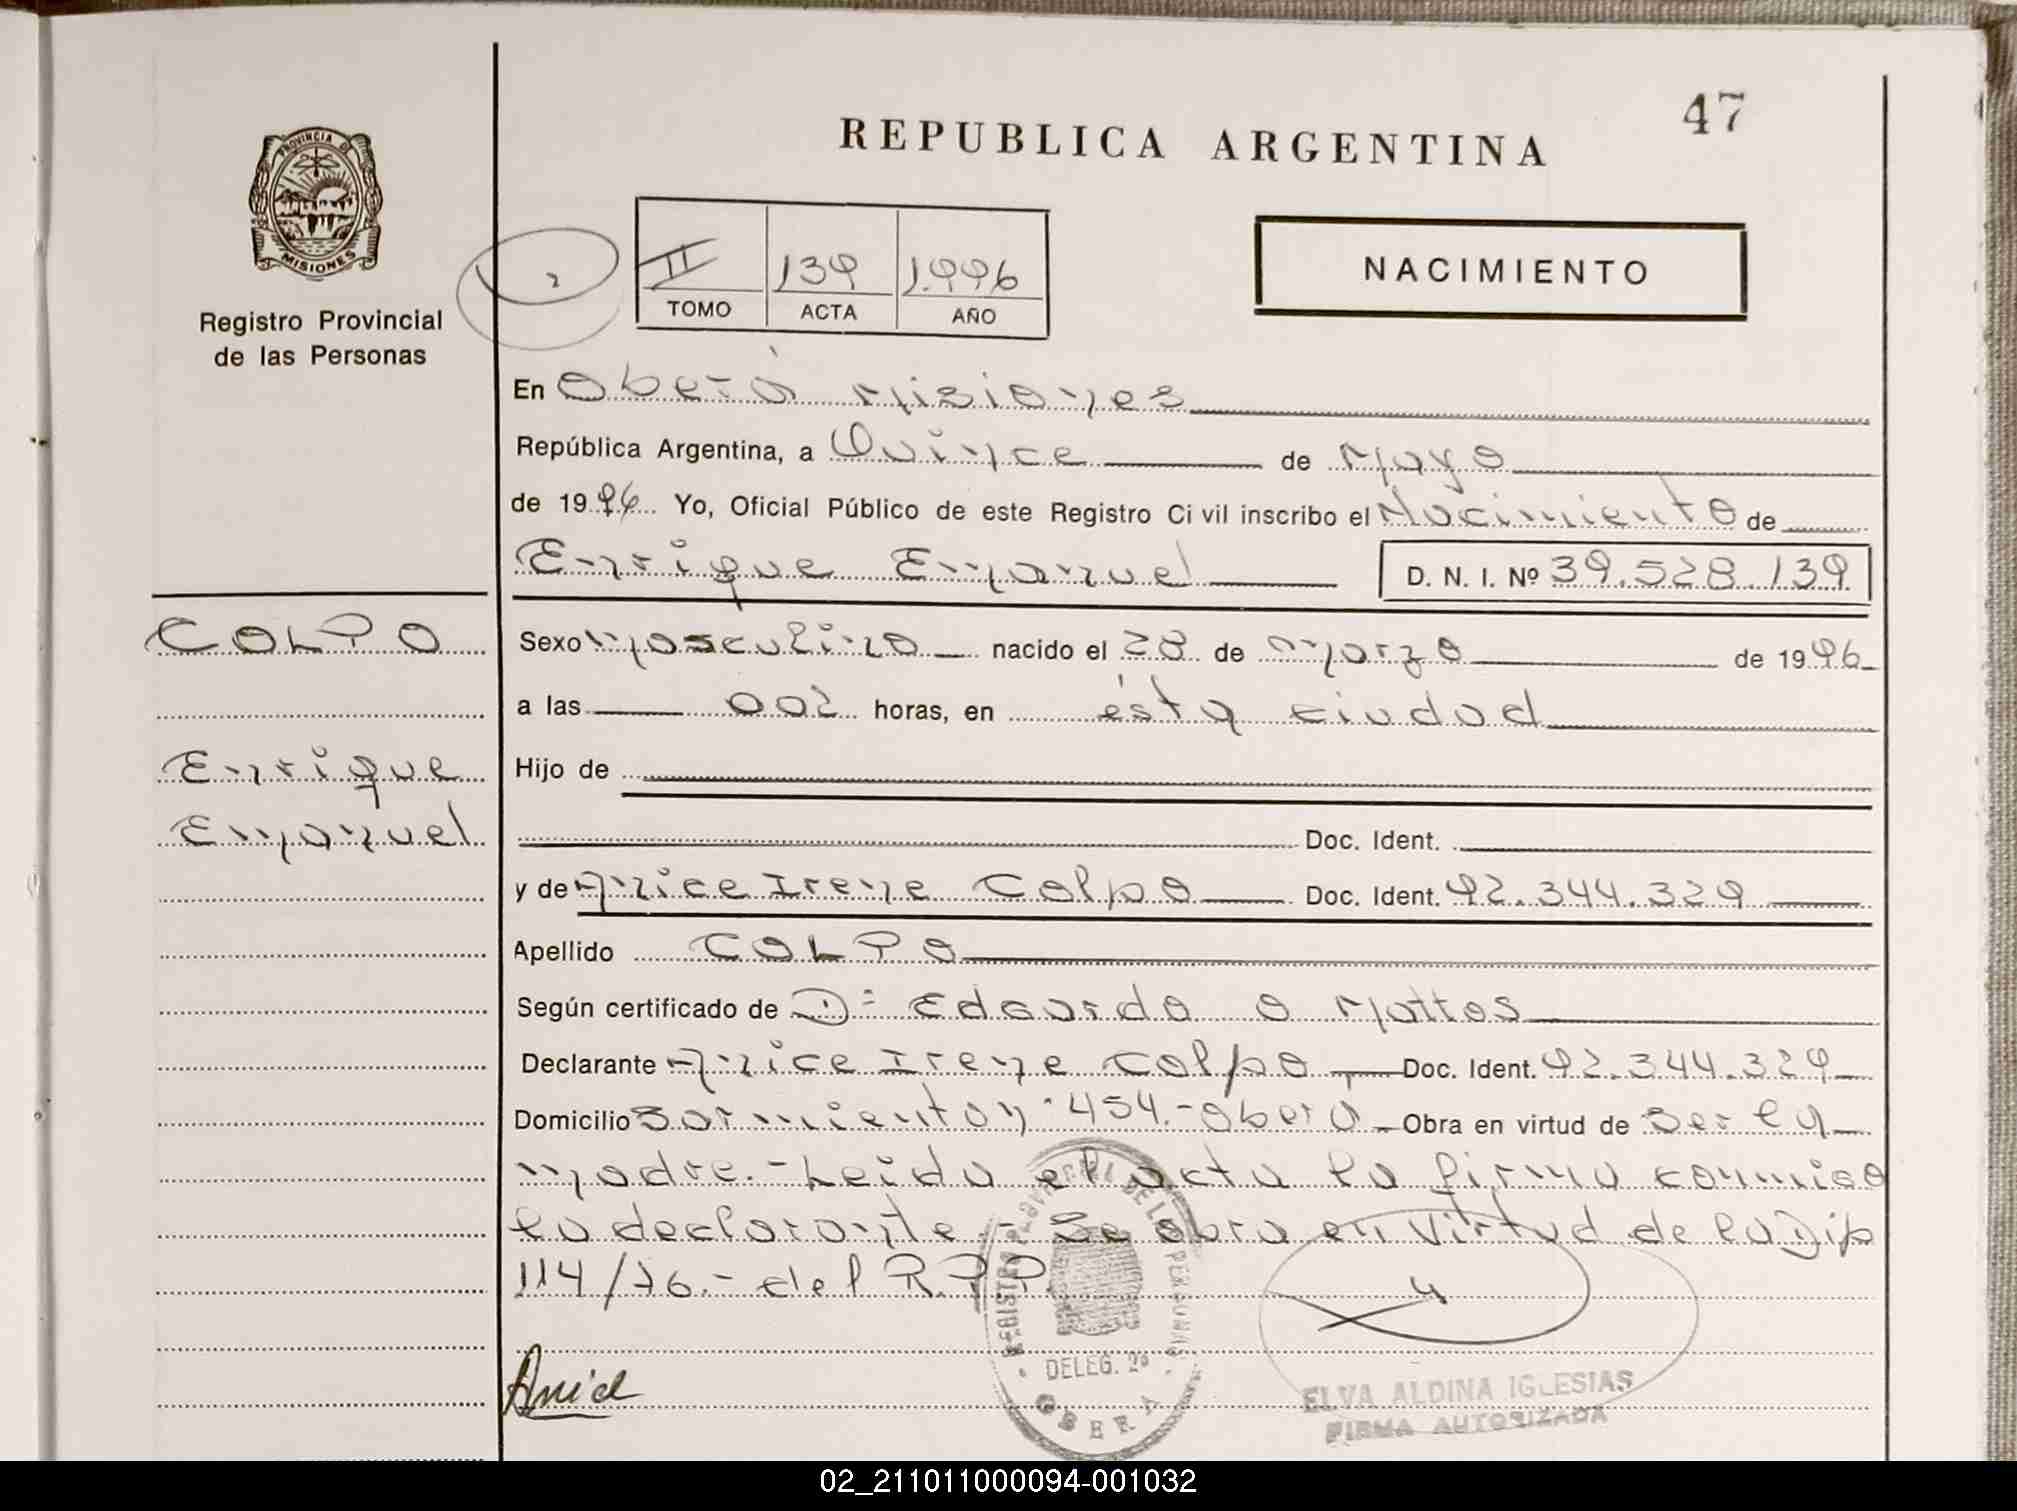 47
REPUBLICA ARGENTINA
PROVINCIA DE
MISIONES
Registro Provincial
de las Personas
II 139 1.996
TOMO ACTA AÑO
NACIMIENTO
En Oberá Misiones
República Argentina, a Quince de Mayo
de 1996 Yo, Oficial Público de este Registro Civil inscribo el Nacimiento de
Enrique Emanuel D. N. I. Nº 39.528.139
COLPO
Enrique
Emanuel
Sexo masculino nacido el 28 de marzo de 1996
a las 002 horas, en ésta ciudad
Hijo de
Doc. Ident.
y de Anice Irene Colpo Doc. Ident. 92.344.329
Apellido COLPO
Según certificado de D= Edgardo O Mattos
Declarante Anice Irene Colpo Doc. Ident. 92.344.329
Domicilio Sarmiento nº 454.- Oberá Obra en virtud de Ser la
madre.- Leida el acta la firma conmigo
la declarante.- Se obra en virtud de la Dip
114/76.- del R.P.P.
Anice
REGISTRO PROVINCIAL DE LAS PERSONAS
DELEG. 2ª
OBERA
ELVA ALDINA IGLESIAS
FIRMA AUTORIZADA
02_211011000094-001032